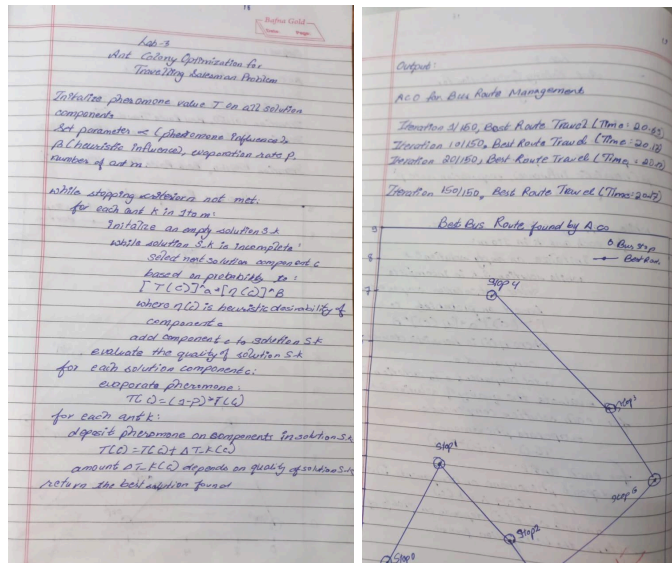 18
Bafna Gold
Date: Page:
Lab-3
Ant Colony Optimization for
Travelling Salesman Problem
Initalize pheromone value T on all solution
components
Set parameter α (pheromone influence),
β (heuristic influence), evaporation rate P.
number of ant m.
while stopping criterion not met:
for each ant k in 1 to m:
initalize an empty solution S-k
while solution S-k is incomplete:
select next solution component c
based on probability to:
[T(c)]^a * [η(c)]^B
where η(c) is heuristic desirability of
component c
add component c to solution S-k
evaluate the quality of solution S-k
for each solution component c:
evaporate pheromone:
T(c) = (1-P)*T(c)
for each ant k:
deposit pheromone on components in solution S-k
T(c) = T(c) + Δ T-k(c)
amount Δ T-k(c) depends on quality of solution S-k
return the best solution found
Output:
ACO for Bus Route Management
Iteration 1/150, Best Route Travel (Time:
Iteration 10/150, Best Route Travel (Time:
Iteration 20/150, Best Route Travel (Time:
Iteration 150/150, Best Route Travel (Time:
Best Bus Route found by ACO
Bus Stop
Best Route
9
8
7
Stop 4
Stop 3
Stop 1
Stop 5
Stop 2
Stop 0